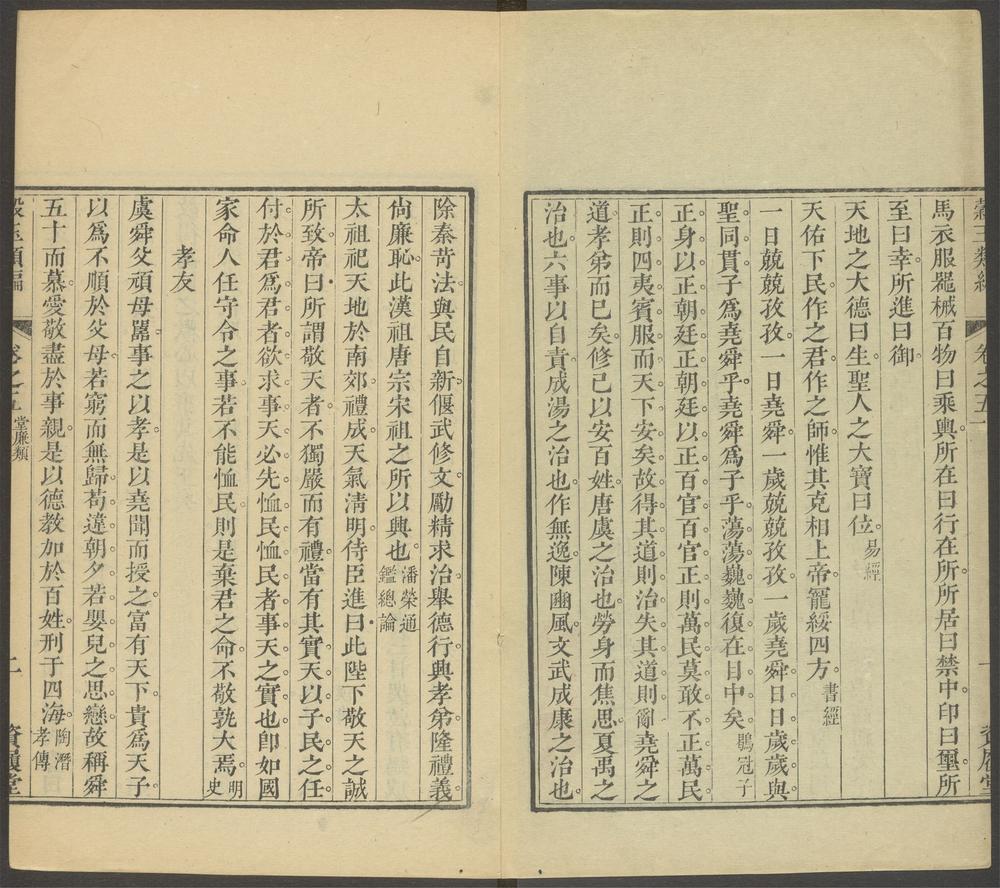 馬衣服器械百物曰乘輿所在曰行在所所居曰禁中印曰璽所
至曰幸所進曰御
天地之大德曰生聖人之大寶曰位易經
天佑下民作之君作之師惟其克相上帝寵綏四方書經
一日兢兢孜孜一日堯舜一歲兢兢孜孜一歲堯舜日日歲歲與
聖同貫子爲堯舜乎堯舜爲子乎蕩蕩巍巍復在目中矣鶡冠子
正身以正朝廷正朝廷以正百官百官正則萬民莫敢不正萬民
正則四夷賓服而天下安矣故得其道則治失其道則亂堯舜之
道孝弟而已矣修己以安百姓唐虞之治也勞身而焦思夏禹之
治也六事以自責成湯之治也作無逸陳豳風文武成康之治也
除秦苛法與民自新偃武修文勵精求治舉德行興孝弟隆禮義
尙廉恥此漢祖唐宗宋祖之所以興也潘榮通鑑總論
太祖祀天地於南郊禮成天氣淸明侍臣進曰此陛下敬天之誠
所致帝曰所謂敬天者不獨嚴而有禮當有其實天以子民之任
付於君爲君者欲求事天必先恤民恤民者事天之實也卽如國
家命人任守令之事若不能恤民則是棄君之命不敬孰大焉明史
孝友
虞舜父頑母嚚事之以孝是以堯聞而授之富有天下貴爲天子
以爲不順於父母若窮而無歸苟違朝夕若嬰兒之思戀故稱舜
五十而慕愛敬盡於事親是以德教加於百姓刑于四海陶潛孝傳
卷之五 堂廉類